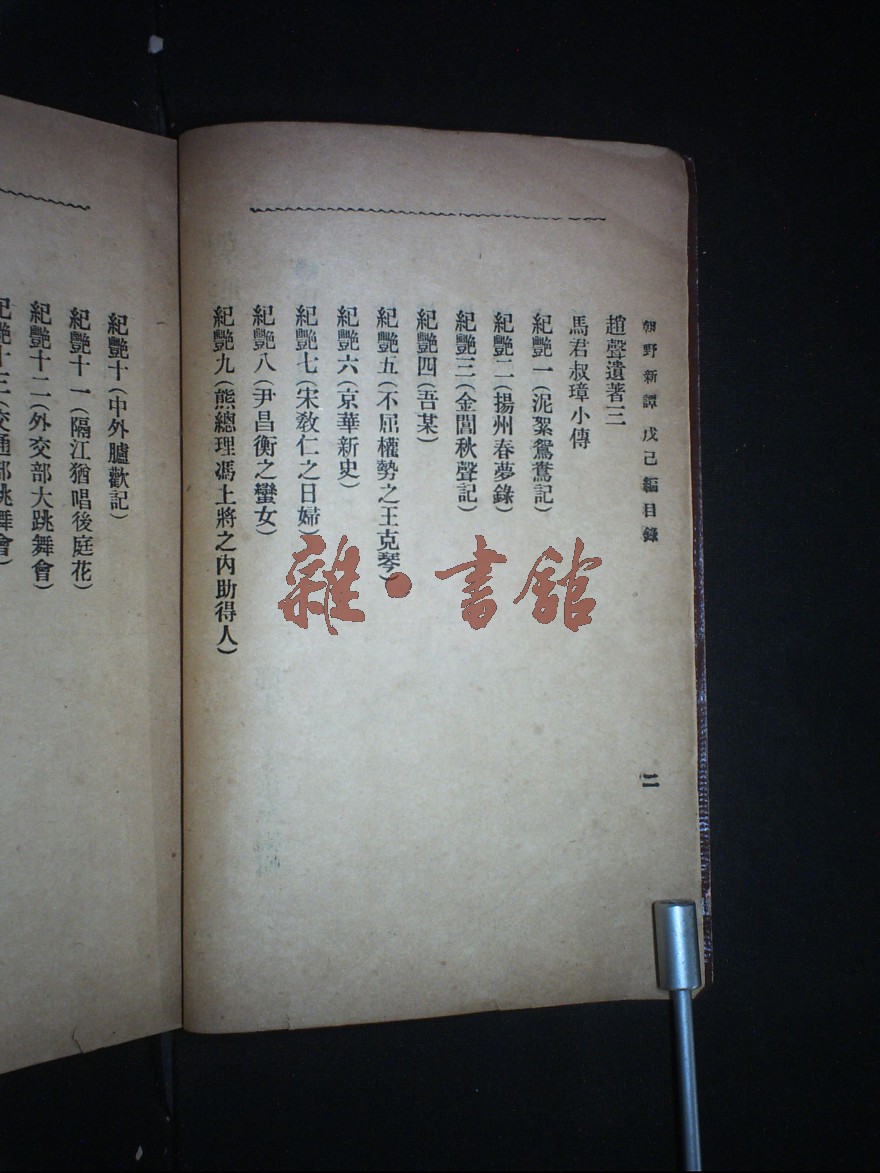 朝野新譚 戊己編目錄
二
趙聲遺著三
馬君叔璋小傳
紀艷一(泥絮鴛鴦記)
紀艷二(揚州春夢錄)
紀艷三(金閶秋聲記)
紀艷四(吾某)
紀艷五(不屈權勢之王克琴)
紀艷六(京華新史)
紀艷七(宋教仁之日婦)
紀艷八(尹昌衡之蠻女)
紀艷九(熊總理馮上將之內助得人)
紀艷十(中外臚歡記)
紀艷十一(隔江猶唱後庭花)
紀艷十二(外交部大跳舞會)
紀艷十三(交通部跳舞會)
雜·書館